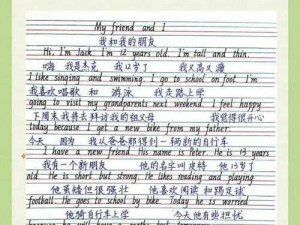 My friend and I
我和我的朋友
Hi, I'm Jack. I'm 12 years old. I'm tall and thin.
嗨 我是杰克 我12岁了 我又高又瘦
I like singing and swimming. I go to school on foot. I'm
我喜欢唱歌 和 游泳 我走路上学
going to visit my grandparents next weekend. I feel happy
下周末我将去拜访我的祖父母 我觉得很开心
today because I get a new bike from my father.
今天 因为 我从爸爸那得到一辆新的自行车
I have a new friend. His name is Peter. He is 13 years
我有一个新朋友 他的名字叫皮特 他13岁了
old. He is short but strong. He likes reading and playing
他虽矮但很强壮 他喜欢阅读和踢足球
football. He goes to school by bike. Today he is worried
他骑自行车上学 今天他有些担忧
because he will have a maths test tomorrow.